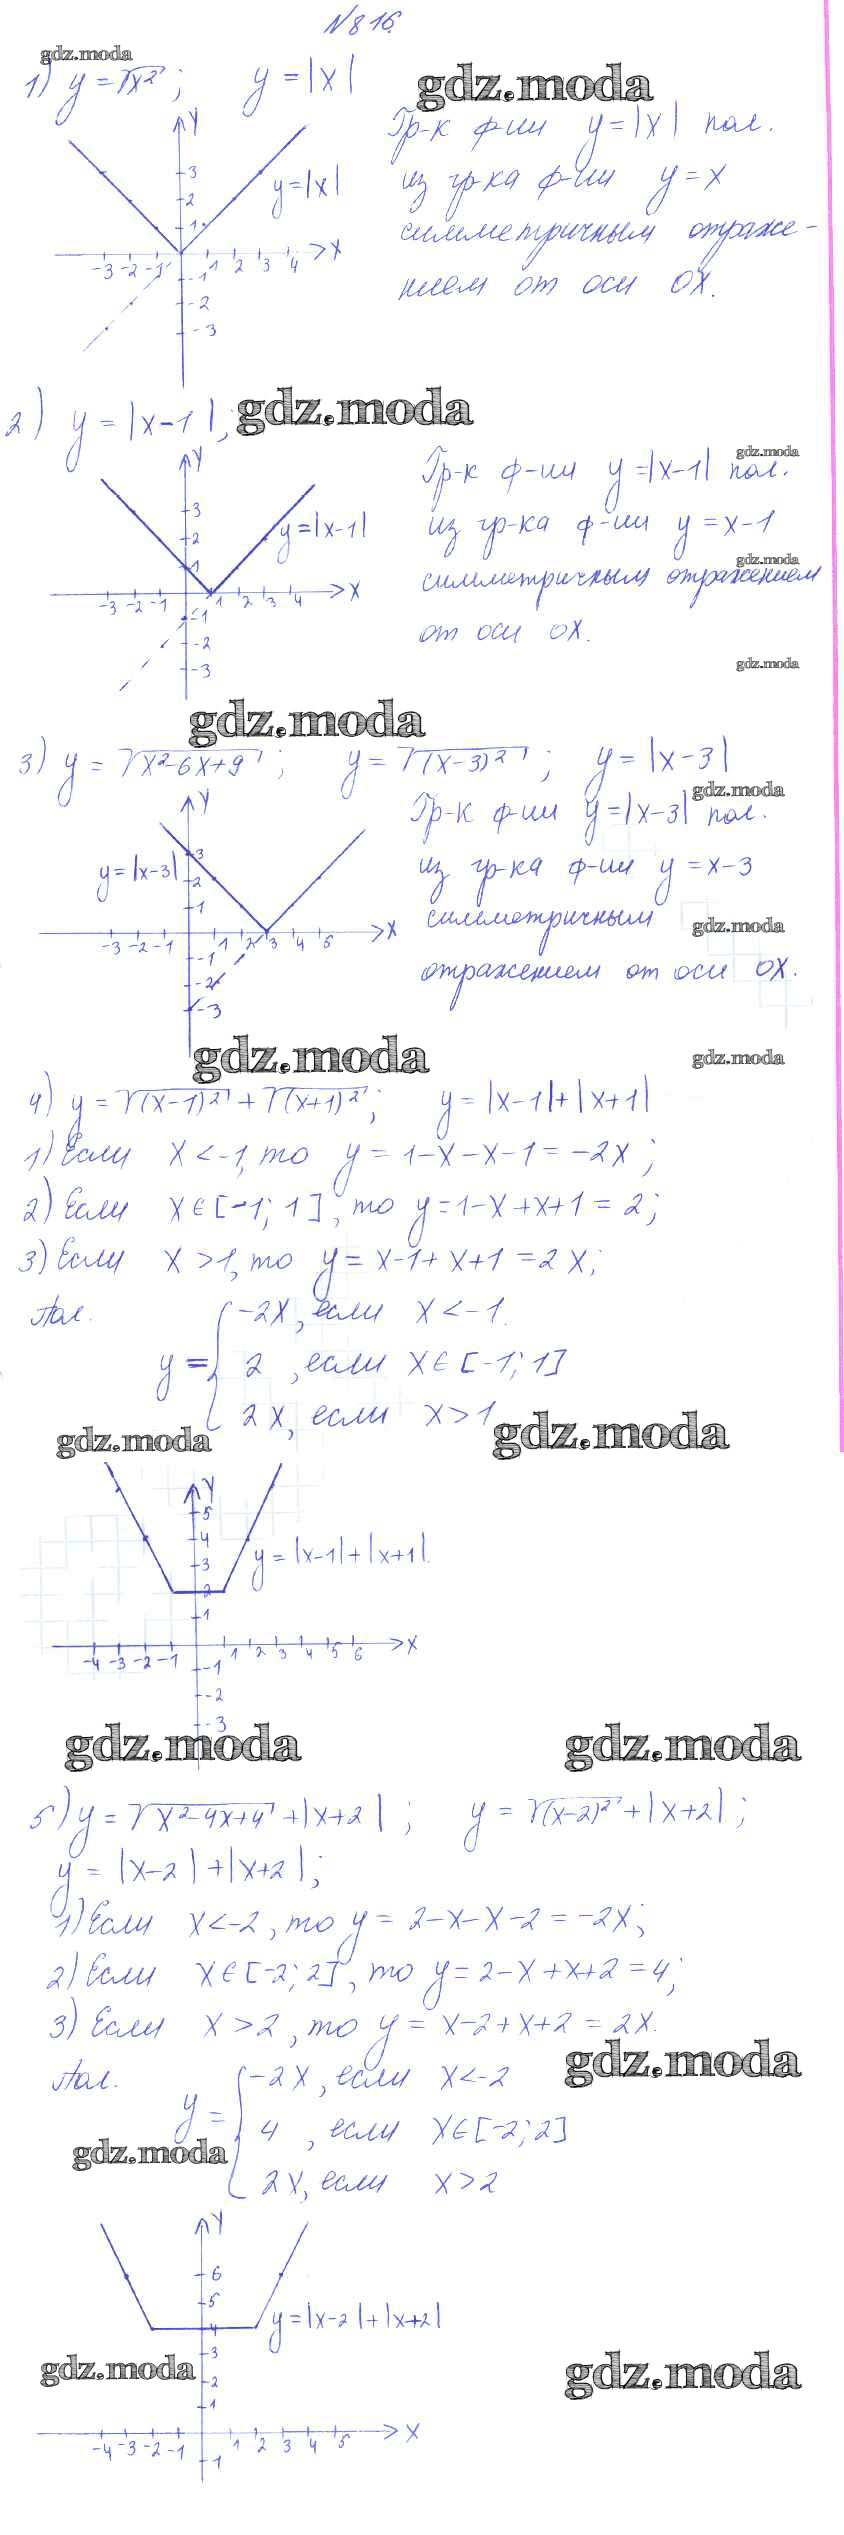 №816
gdz.moda
1) y = √x²; y = |x|
gdz.moda
Гр-к ф-ии y = |x| пол.
из гр-ка ф-ии y = x
симметричным отраже-
нием от оси OX.
Y
3
2
1
y = |x|
-3 -2 -1 1 2 3 4 X
-1
-2
-3
2) y = |x-1|;
gdz.moda
gdz.moda
Гр-к ф-ии y = |x-1| пол.
из гр-ка ф-ии y = x-1
gdz.moda
симметричным отражением
от оси OX.
gdz.moda
Y
3
2
1
y = |x-1|
-3 -2 -1 1 2 3 4 X
-1
-2
-3
gdz.moda
3) y = √x²-6x+9; y = √(x-3)²; y = |x-3|
gdz.moda
Гр-к ф-ии y = |x-3| пол.
из гр-ка ф-ии y = x-3
симметричным
gdz.moda
отражением от оси OX.
Y
y = |x-3|
3
2
1
-3 -2 -1 1 2 3 4 5 X
-1
-2
-3
gdz.moda
gdz.moda
4) y = √(x-1)² + √(x+1)²; y = |x-1|+|x+1|
1) Если x < -1, то y = 1-x-x-1 = -2x;
2) Если x ∈ [-1; 1], то y = 1-x+x+1 = 2;
3) Если x > 1, то y = x-1+x+1 = 2x;
Пол.
-2x, если x < -1.
y = { 2, если x ∈ [-1; 1]
2x, если x > 1
gdz.moda
gdz.moda
Y
5
4
3
2
1
y = |x-1|+|x+1|.
-4 -3 -2 -1 1 2 3 4 5 6 X
-1
-2
-3
gdz.moda
gdz.moda
5) y = √x²-4x+4 + |x+2|; y = √(x-2)² + |x+2|;
y = |x-2|+|x+2|;
1) Если x < -2, то y = 2-x-x-2 = -2x;
2) Если x ∈ [-2; 2], то y = 2-x+x+2 = 4;
3) Если x > 2, то y = x-2+x+2 = 2x.
gdz.moda
Пол.
-2x, если x < -2
y = { 4, если x ∈ [-2; 2]
2x, если x > 2
gdz.moda
Y
6
5
4
3
2
1
y = |x-2|+|x+2|
gdz.moda
gdz.moda
-4 -3 -2 -1 1 2 3 4 5 X
-1